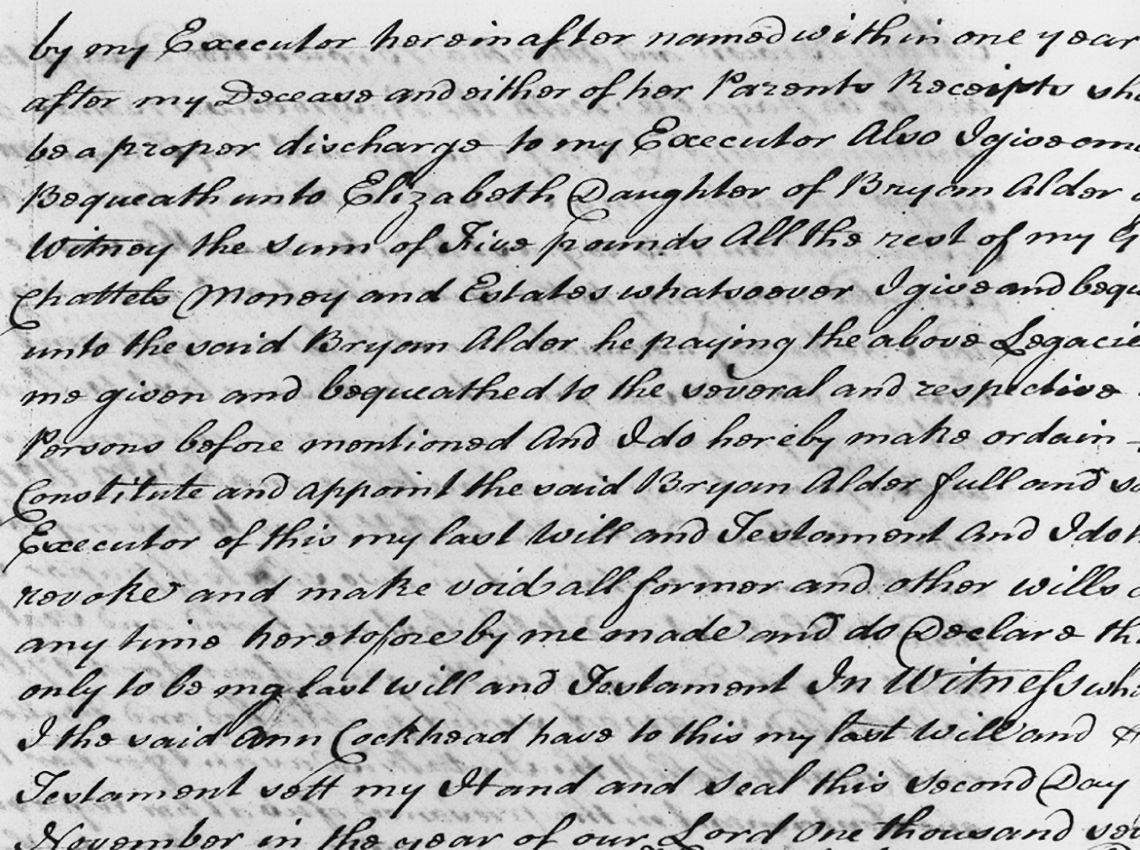 by my Executor hereinafter named within one year
after my Decease and either of her Parents Receipts sha
be a proper discharge to my Executor Also I give and
Bequeath unto Elizabeth Daughter of Bryan Alder
Witney the sum of Five pounds All the rest of my G
Chattels Money and Estates whatsoever I give and bequ
unto the said Bryan Alder he paying the above Legacie
me given and bequeathed to the several and respective
Persons before mentioned And I do hereby make ordain -
Constitute and appoint the said Bryan Alder full and so
Executor of this my last Will and Testament And I do h
revoke and make void all former and other wills
any time heretofore by me made and do Declare thi
only to be my last will and Testament In Witness whe
I the said Ann Cockhead have to this my last Will and
Testament sett my Hand and Seal this Second Day
November in the year of our Lord One thousand sev